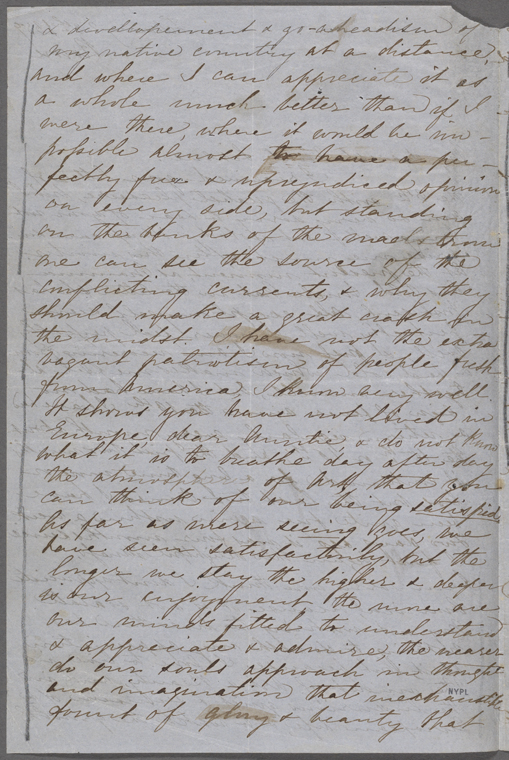 & divellopement & go-aheadism of
my native country at a distance,
and where I can appreciate it as
a whole much better than if I
were there, where it would be im-
possible almost to have a per-
fectly free & unprejudiced opinion
on every side, but standing
on the banks of the maelstrom
one can see the source of the
conflicting currents, & why they
should make a great crash in
the midst. I have not the extra
vagant patriotism of people fresh
from America I know very well
It shows you have not lived in
Europe dear Auntie & do not know
what it is to breathe day after day
the atmosphere of Art that you
can think of our being satisfied.
As far as mere seeing goes, we
have seen satisfactorily, but the
longer we stay the higher & deeper
is our enjoyment the more are
our minds fitted to understand
& appreciate & admire, the nearer
do our souls approach in thought
and imagination that
fount of glory & beauty that
NYPL